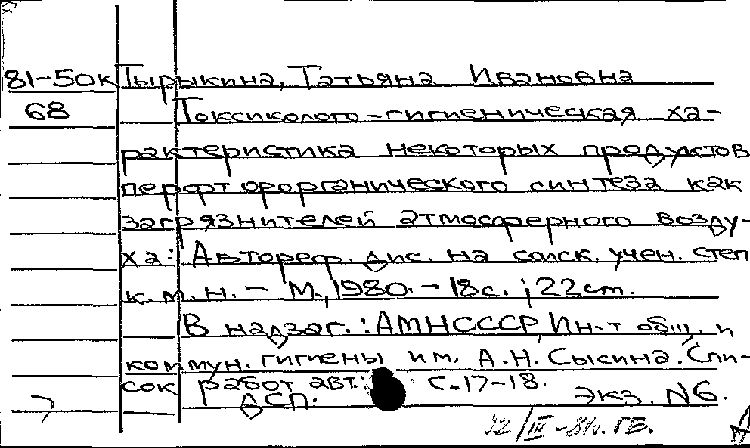 81-50к Тырыкина, Татьяна Ивановна
68 Токсиколого-гигиеническая ха-
рактеристика некоторых продуктов
перфторорганического синтеза как
загрязнителей атмосферного возду-
ха: Автореф. дис. на соиск. учен. степ
к.м.н. - М., 1980. - 18с.; 22ст.
В надзаг.: АМН СССР, Ин-т общ. и
коммун. гигиены им. А.Н. Сысина. Спи-
сок работ авт.: с.17-18.
ДСП. Экз. N6.
/III-81г. ГВ.